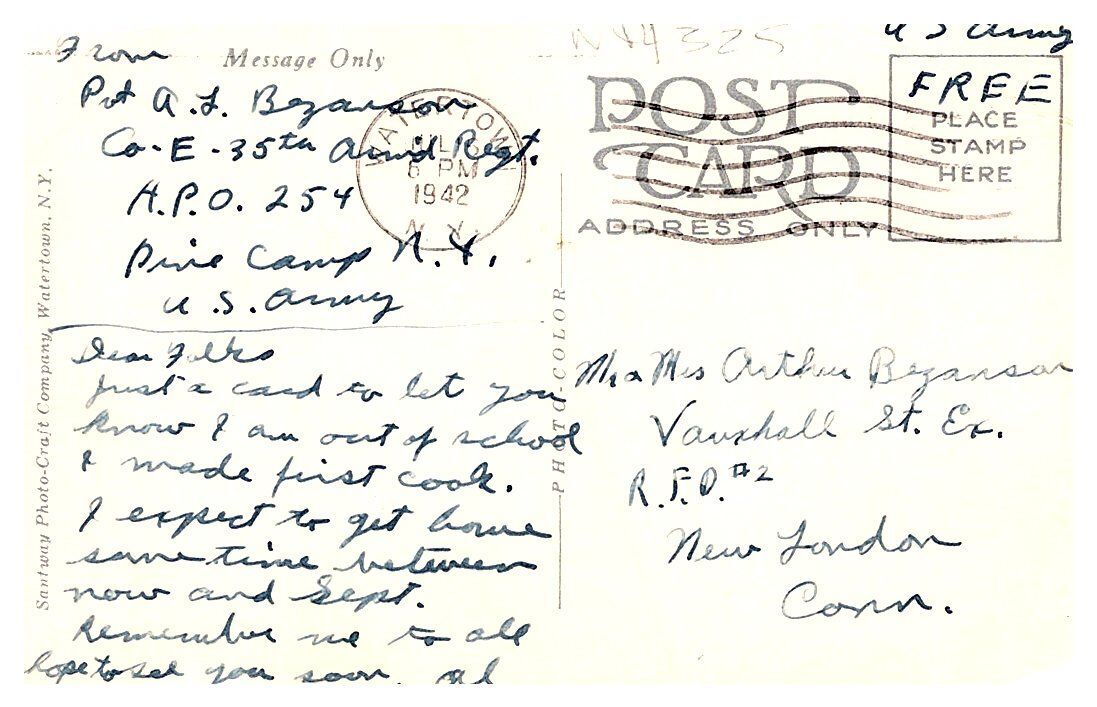 From
Message Only
Pvt A. L. Bezanson
Co-E-35th Armd Regt.
A.P.O. 254
Pine Camp N.Y.
U.S. Army
Dear Folks
Just a card to let you
know I am out of school
I made first cook.
I expect to get home
some time between
now and Sept.
Remember me to all
hope to see you soon. Al
WATERTOWN
JUL
6 PM
1942
N.Y.
NY4325
U S Army
POST
CARD
ADDRESS ONLY
FREE
PLACE
STAMP
HERE
Mr & Mrs Arthur Bezanson
Vauxhall St. Ex.
R.F.D. #2
New London
Conn.
PHOTO-COLOR
Santway Photo-Craft Company, Watertown, N.Y.